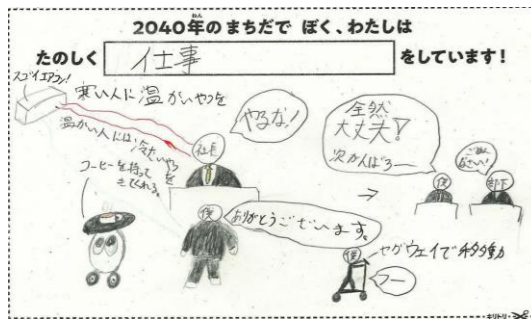 2040年のまちだで ぼく、わたしは
ねん
たのしく 仕事 をしています！
スゴイエアコン！
寒い人に温かいやつを
温かい人には冷たいやつを
コーヒーを持って
きてくれる。
社長
やるな！
全然
大丈夫！
次がんばろー
ごめん
なさい！
俺
部下
→
僕
ありがとうございます。
僕
セグウェイで移動
フー
キリトリ